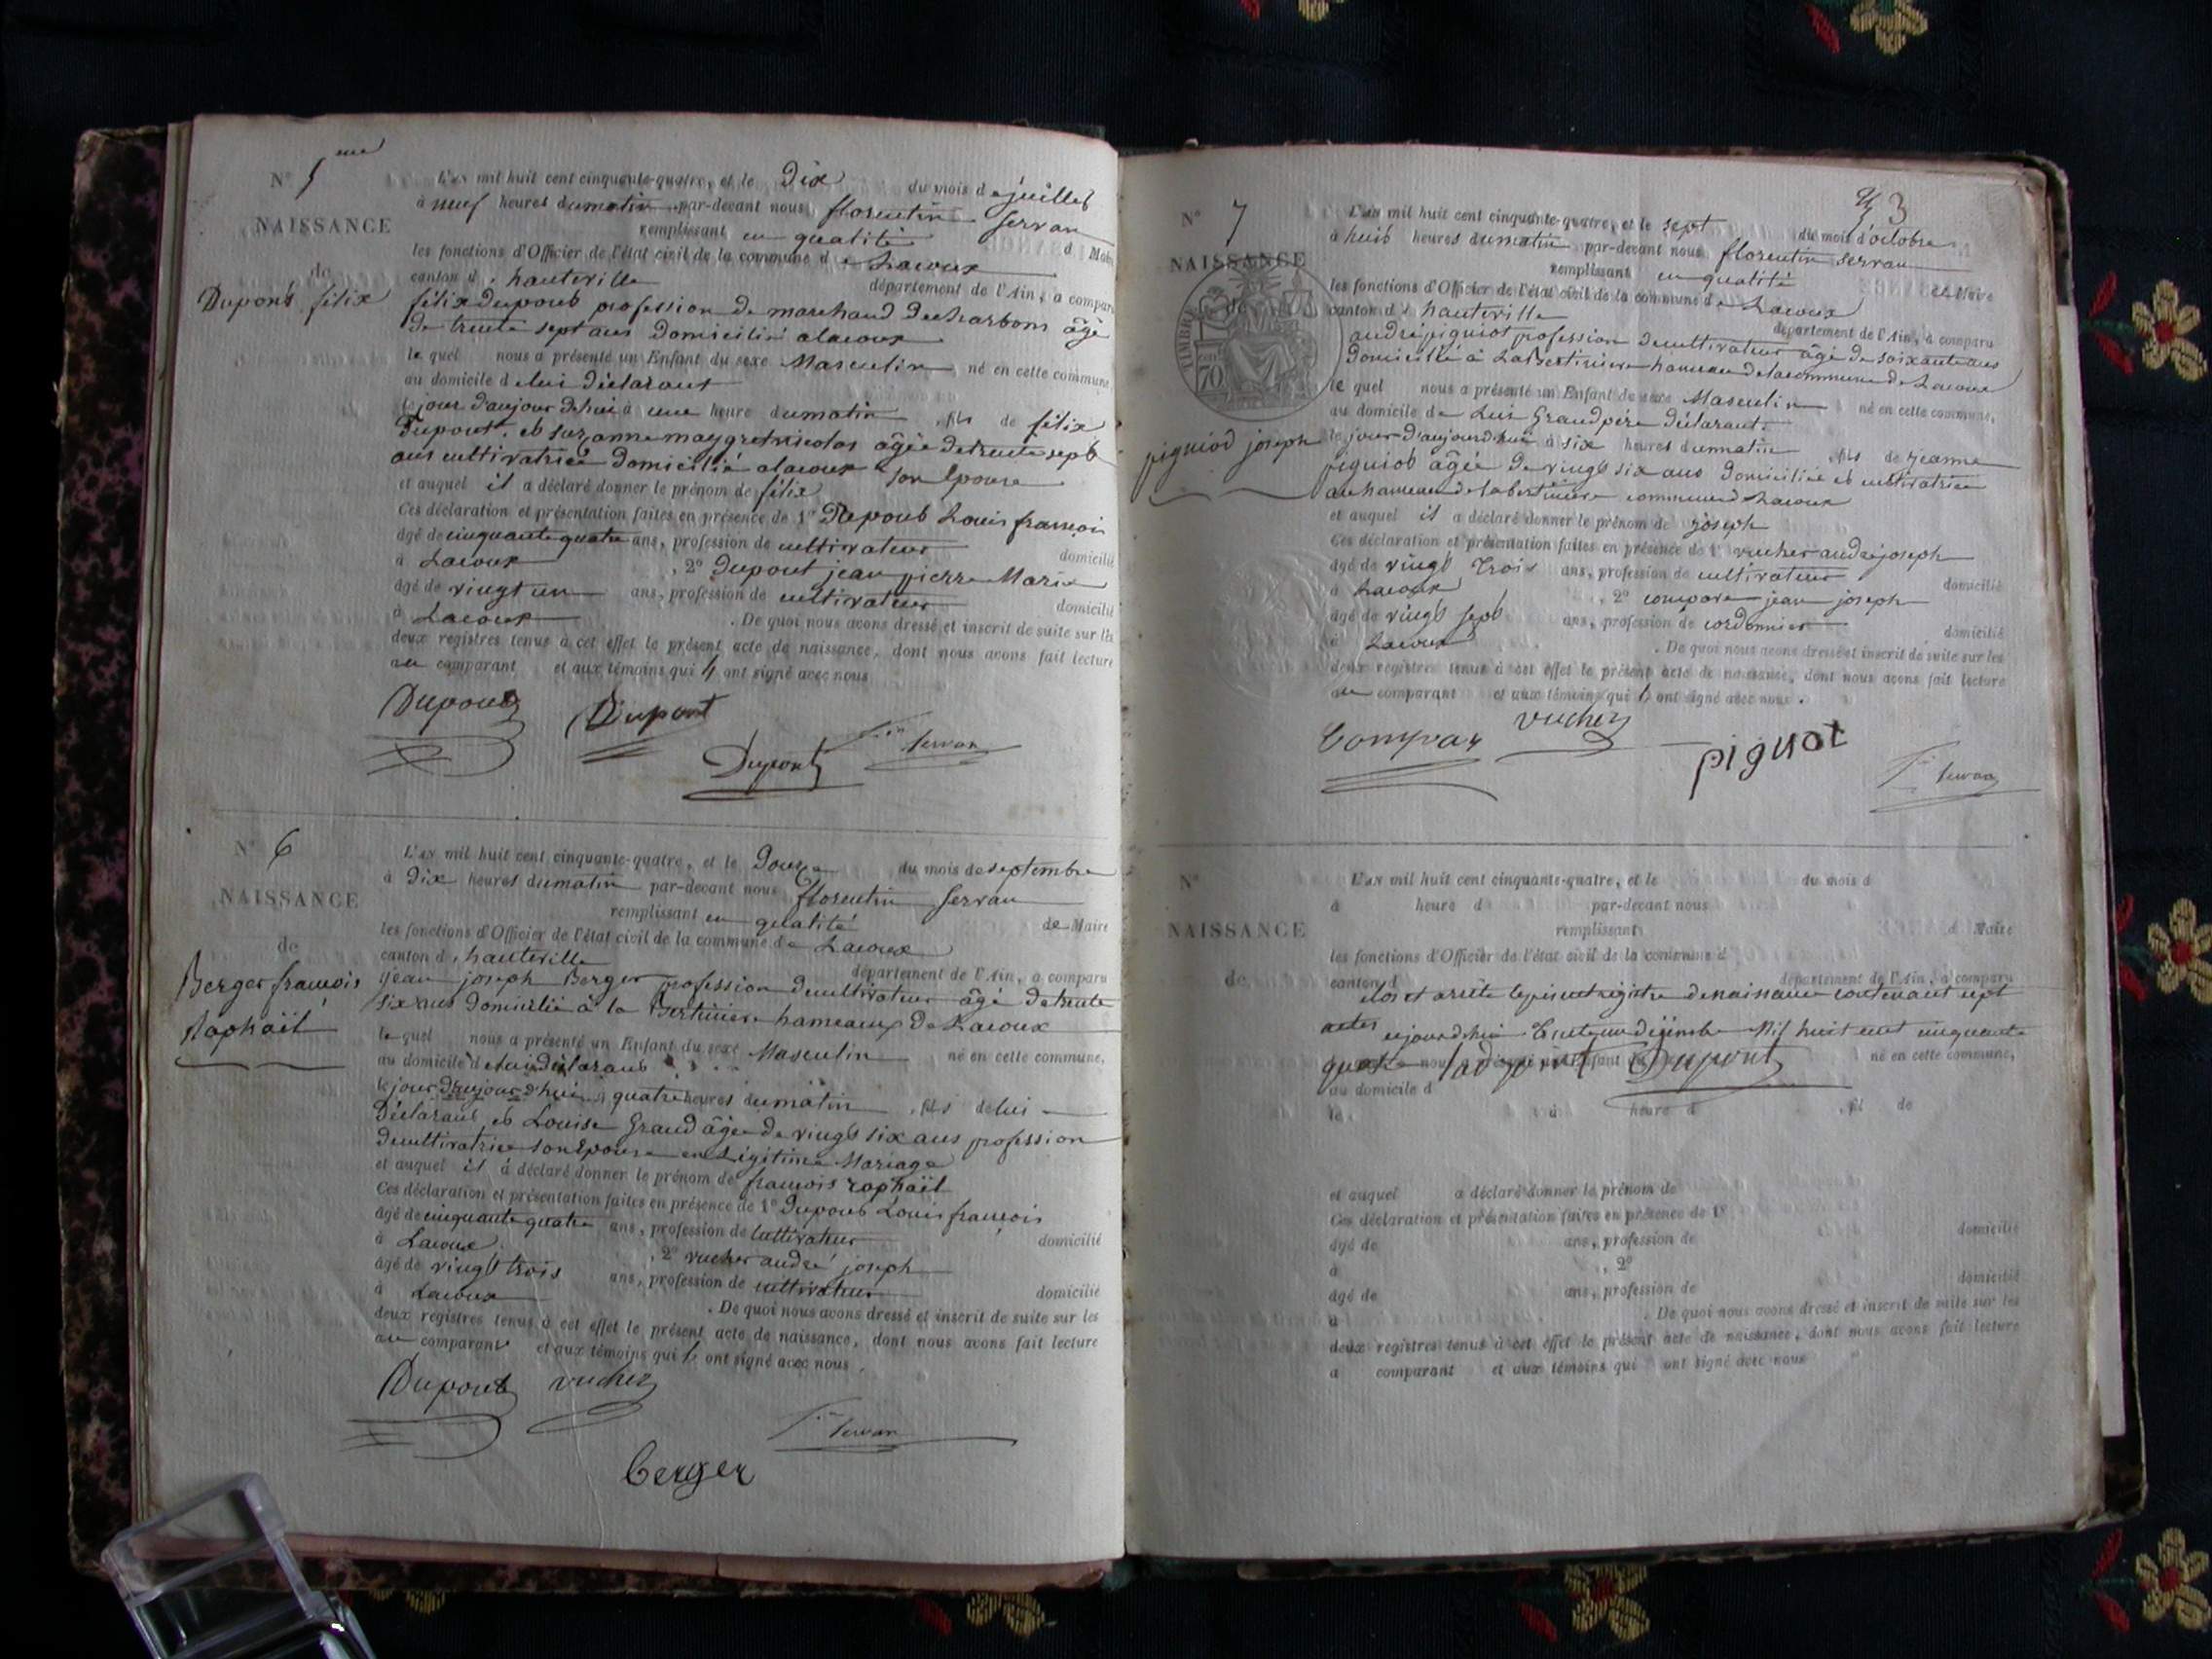 N° 5 me
NAISSANCE
de
Dupont félix
L'an mil huit cent cinquante-quatre, et le Dix du mois de juillet
à neuf heures du matin par-devant nous florentin servan
remplissant en qualité d Maire
les fonctions d'Officier de l'état civil de la commune d e Lacoux
canton d' hauteville département de l'Ain, a comparu
félix dupont profession de marchand de charbons âgé
de trente sept ans domicilié a lacoux
le quel nous a présenté un Enfant du sexe Masculin né en cette commune,
au domicile de lui déclarant
le jour d'aujourd'hui à une heure du matin, fils de félix
Dupont, et suzanne maygret nicolas âgée de trente sept
ans cultivatrice domicilié a lacoux son Epouse
et auquel il a déclaré donner le prénom de félix
Ces déclaration et présentation faites en présence de 1° Dupont Louis françois
âgé de cinquante quatre ans, profession de cultivateur domicilié
à Lacoux, 2° dupont jean pierre Marie
âgé de vingt un ans, profession de cultivateur domicilié
à Lacoux. De quoi nous avons dressé et inscrit de suite sur les
deux registres tenus à cet effet le présent acte de naissance, dont nous avons fait lecture
au comparant et aux témoins qui ont signé avec nous
Dupont Dupont
Dupont servan
N° 6
NAISSANCE
de
Berger françois
Raphaël
L'an mil huit cent cinquante-quatre, et le Douze du mois de septembre
à Dix heures du matin par-devant nous florentin servan
remplissant en qualité de Maire
les fonctions d'Officier de l'état civil de la commune de Lacoux
canton d' hauteville département de l'Ain, a comparu
jean joseph Berger profession de cultivateur âgé de trente
six ans domicilié à la Bertinière hameaux de Lacoux
le quel nous a présenté un Enfant du sexe Masculin né en cette commune,
au domicile de lui déclarant
le jour d'aujourd'hui à quatre heures du matin, fils de lui
déclarant et Louise Grand âgée de vingt six ans profession
de cultivatrice son Epouse en Légitime Mariage
et auquel il a déclaré donner le prénom de françois raphaël
Ces déclaration et présentation faites en présence de 1° Dupont Louis françois
âgé de cinquante quatre ans, profession de cultivateur domicilié
à Lacoux, 2° vucher andré joseph
âgé de vingt trois ans, profession de cultivateur domicilié
à Lacoux. De quoi nous avons dressé et inscrit de suite sur les
deux registres tenus à cet effet le présent acte de naissance, dont nous avons fait lecture
au comparant et aux témoins qui ont signé avec nous.
Dupont vucher
servan
berger
3
N° 7
NAISSANCE
de
TIMBRE
70
piguiod joseph
L'an mil huit cent cinquante-quatre, et le sept du mois d'octobre
à huit heures du matin par-devant nous florentin servan
remplissant en qualité de Maire
les fonctions d'Officier de l'état civil de la commune de Lacoux
canton d' hauteville département de l'Ain, a comparu
andré piguiot profession de cultivateur âgé de soixante ans
domicilié à La Bertinière hameau de la commune de Lacoux
le quel nous a présenté un Enfant du sexe Masculin né en cette commune,
au domicile de Lui Grand père déclarant.
le jour d'aujourd'hui à six heures du matin, fils de jeanne
piguiot âgée de vingt six ans domiciliée et cultivatrice
au hameau de la bertinière commune de Lacoux
et auquel il a déclaré donner le prénom de joseph
Ces déclaration et présentation faites en présence de 1° vucher andré joseph
âgé de vingt trois ans, profession de cultivateur domicilié
à Lacoux, 2° compare jean joseph
âgé de vingt sept ans, profession de cordonnier domicilié
à Lacoux. De quoi nous avons dressé et inscrit de suite sur les
deux registres tenus à cet effet le présent acte de naissance, dont nous avons fait lecture
au comparant et aux témoins qui ont signé avec nous.
Compar vucher
piguot
servan
N°
NAISSANCE
de
L'an mil huit cent cinquante-quatre, et le du mois d
à heure d par-devant nous
remplissant d Maire
les fonctions d'Officier de l'état civil de la commune d
canton d département de l'Ain, a comparu
clos et arrêté le présent registre de naissance contenant sept
actes cejourd'hui trente un décembre Mil huit cent cinquante
quatre nous a présenté un Enfant né en cette commune,
l'adjoint Dupont
au domicile d
le à heure d, fil de
et auquel a déclaré donner le prénom de
Ces déclaration et présentation faites en présence de 1°
âgé de ans, profession de domicilié
à, 2°
âgé de ans, profession de domicilié
à. De quoi nous avons dressé et inscrit de suite sur les
deux registres tenus à cet effet le présent acte de naissance, dont nous avons fait lecture
a comparant et aux témoins qui ont signé avec nous